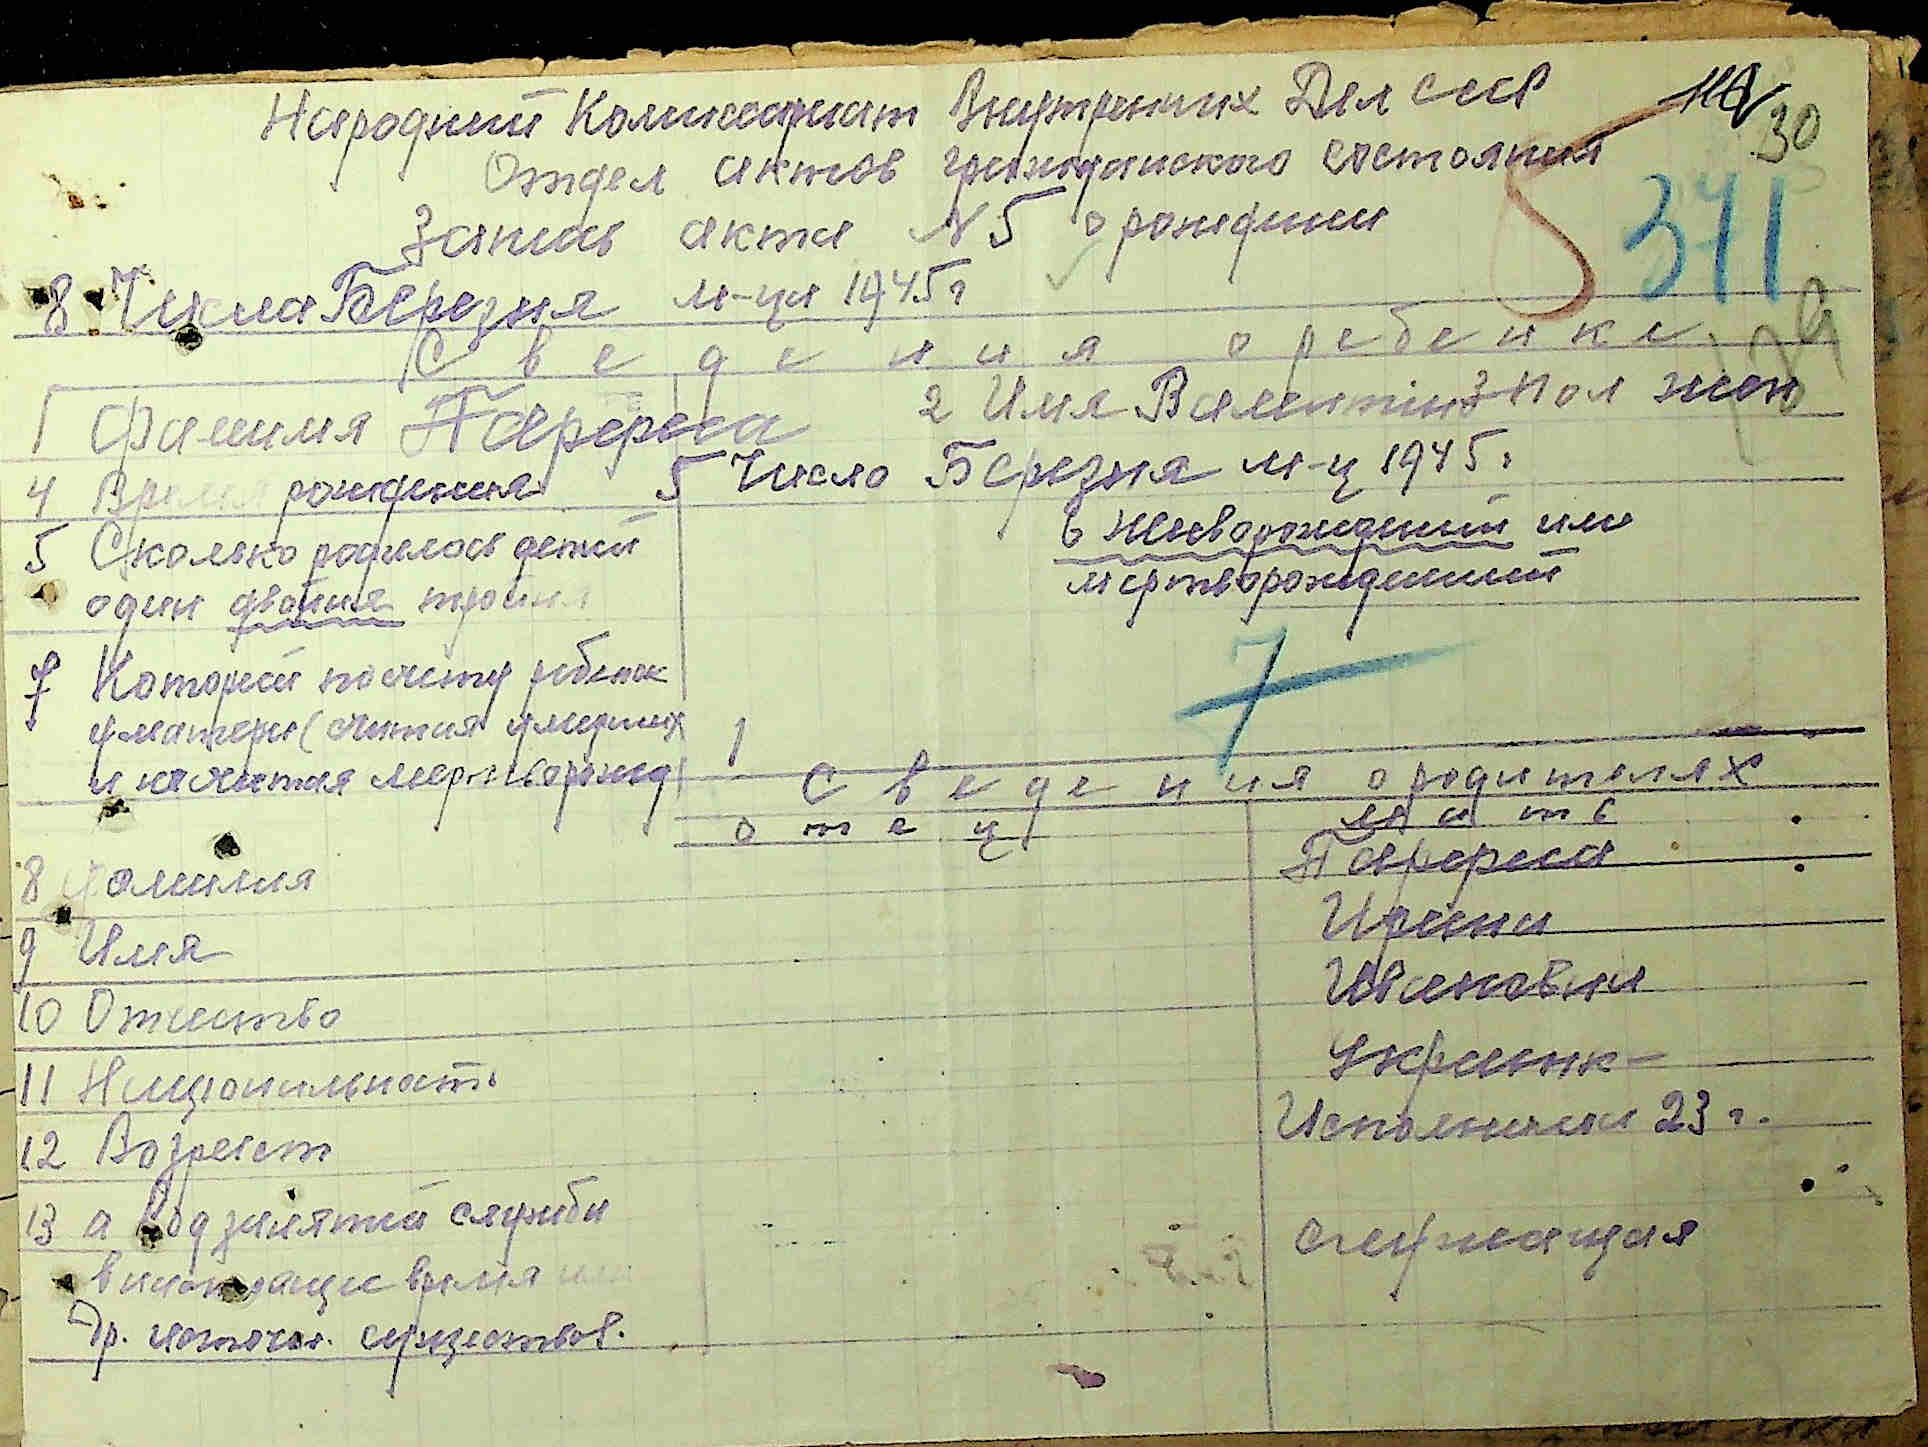 Народний Комиссариат Внутренних Дел СССР
30
Отдел актов гражданского состояния
Запись акта N 5 о рождении
371
8 Числа Березня м-ця 1945 г
Сведения о ребенке
1 Фамилия
2 Имя Валентина 3 Пол жен
4 Время рождения 5 Число Березня м-ц 1945 г
5 Сколько родилось детей
один двойня тройня
6 Живорожденний или
мертворожденний
7 Которий по счету ребенок
у матери (считая умерших
и не считая мертворожд
1
7
Сведения о родителях
отец
мать
8 Фамилия
9 Имя
Ирина
10 Отчество
Ивановна
11 Национальность
Украинк-
12 Возраст
Исполнилси 23 г.
13 а Род занятий служби
в настоящие время или
Др. источн. существов.
служащая